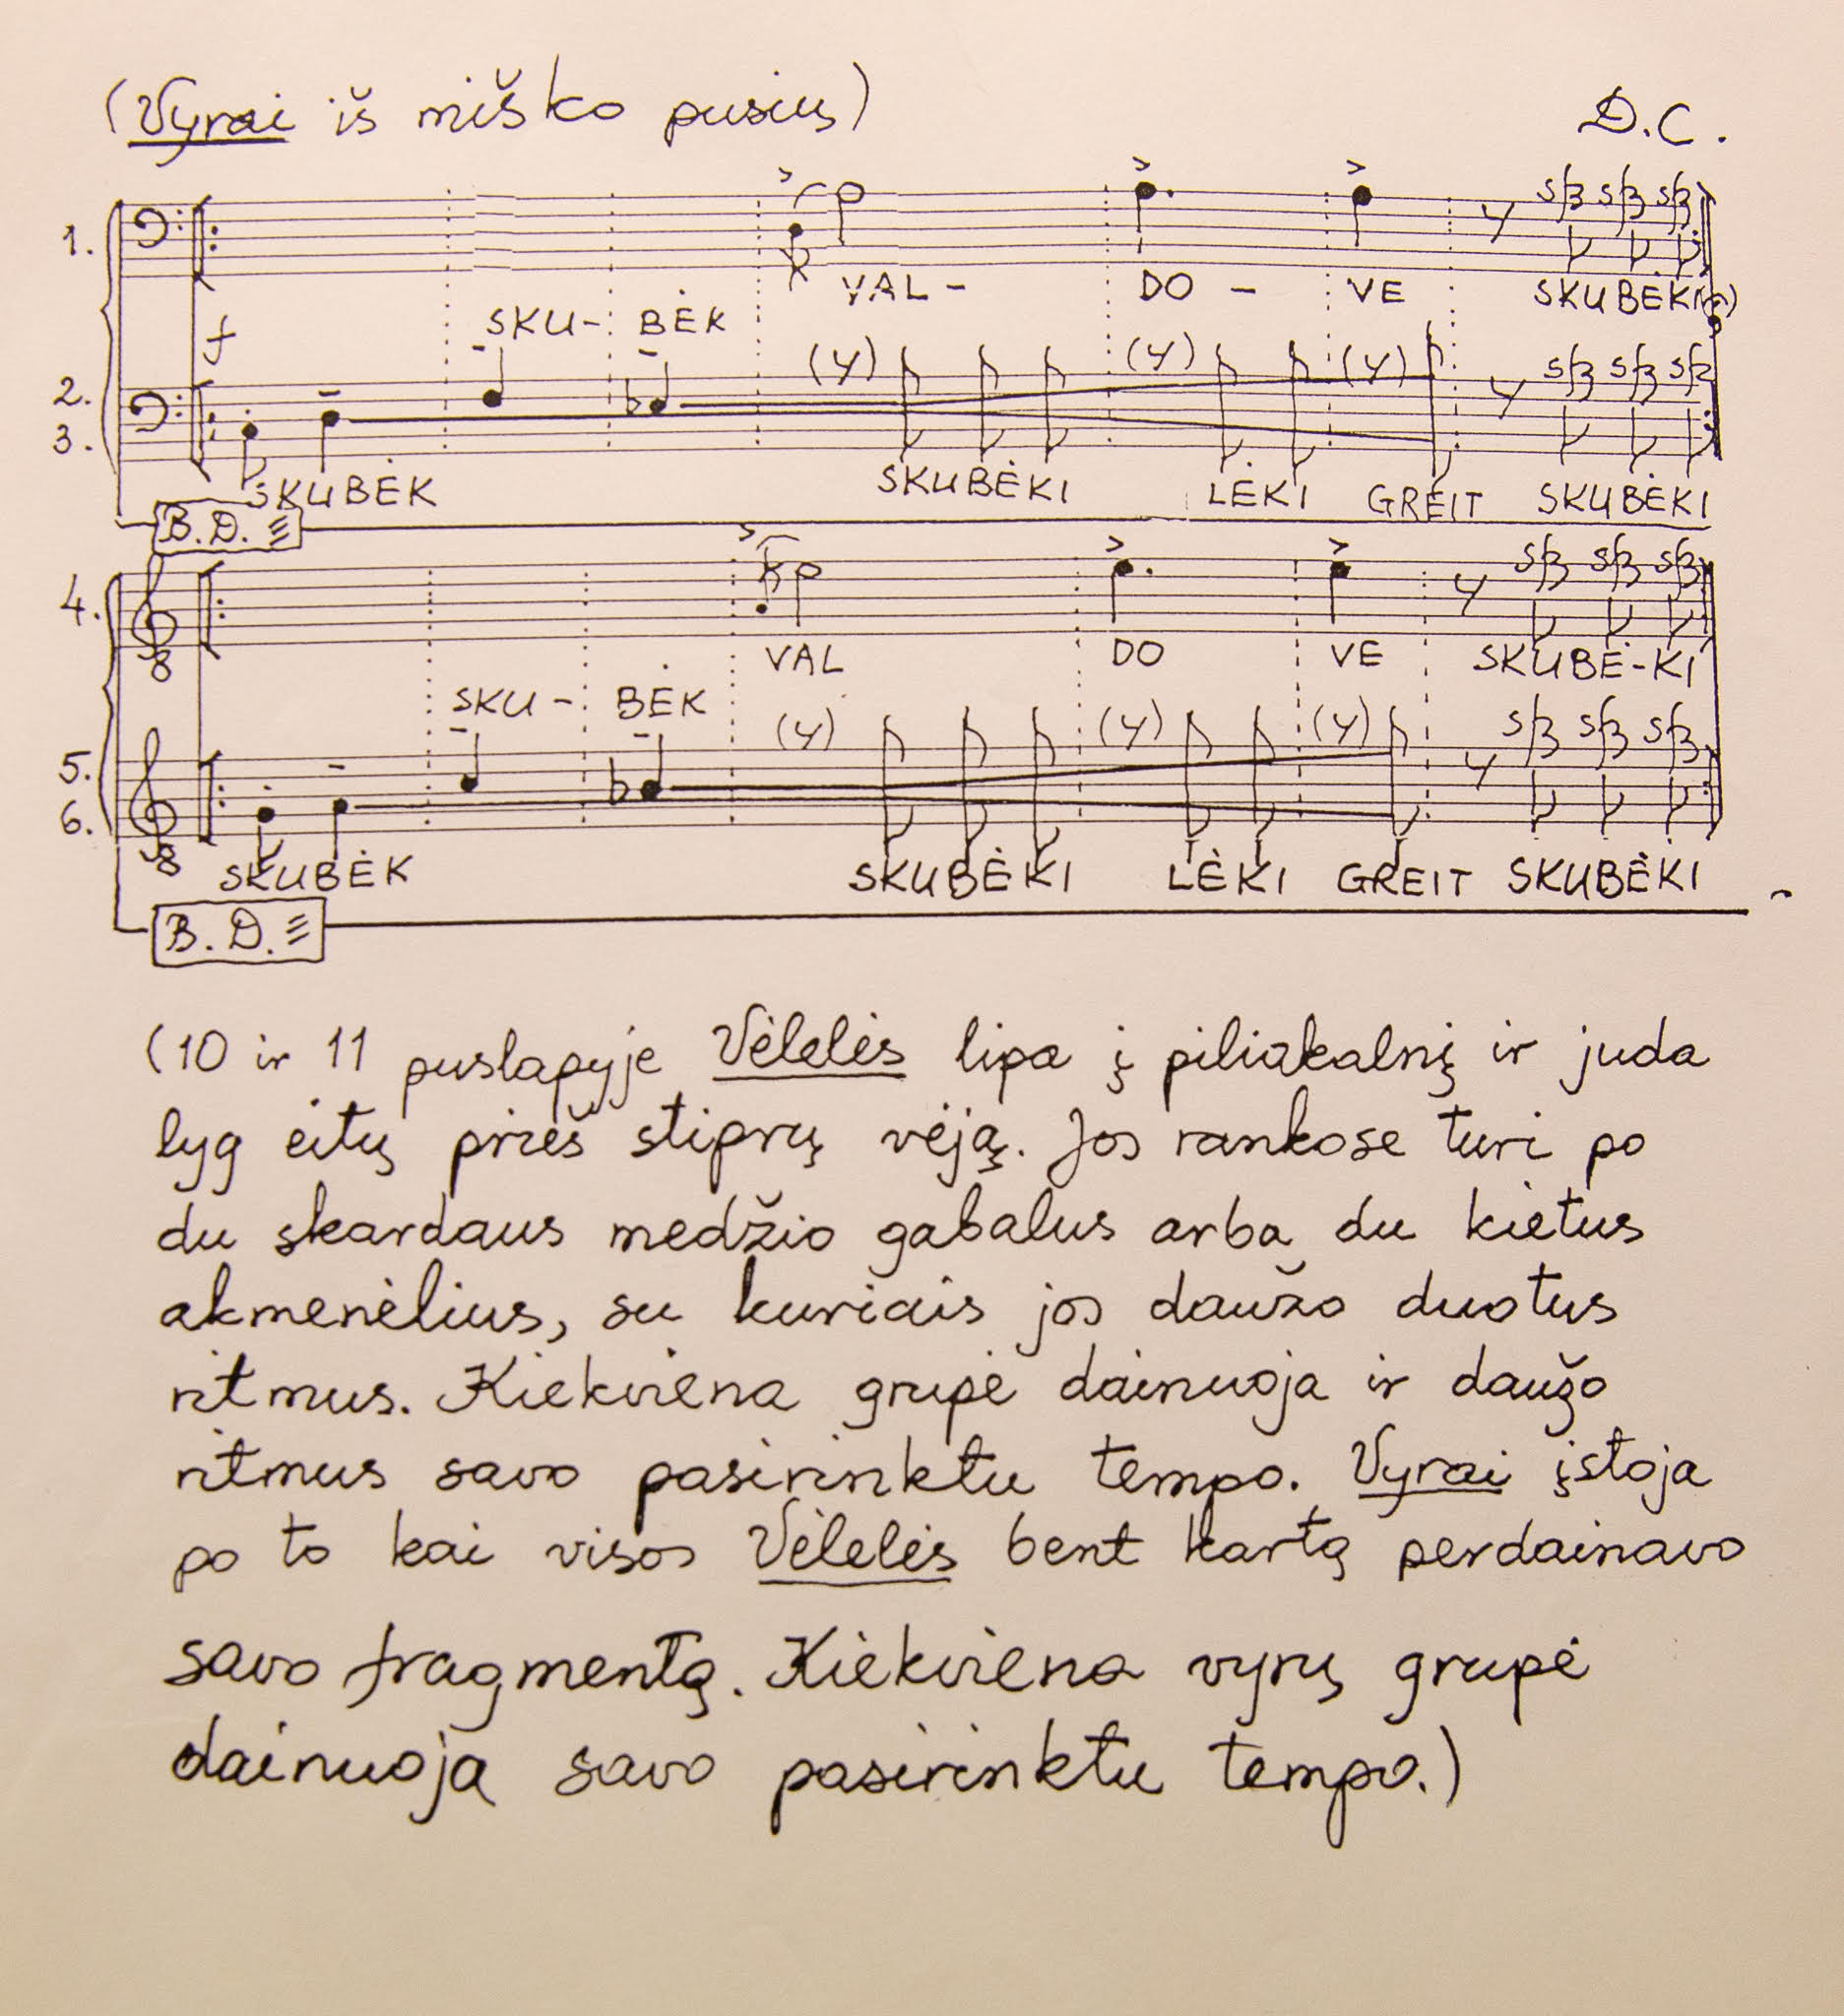 (Vyrai iš miško pusių)
D.C.
1.
VAL - DO - VE SKUBĖKI
f
SKU- BĖK
2.
3.
SKUBĖK SKUBĖKI LĖKI GREIT SKUBĖKI
B.D.
4.
VAL DO VE SKUBĖ-KI
SKU - BĖK
5.
6.
SKUBĖK SKUBĖKI LĖKI GREIT SKUBĖKI
B.D.
(10 ir 11 puslapyje Vėlelės lipa į piliakalnį ir juda
lyg eitų prieš stiprų vėją. Jos rankose turi po
du skardaus medžio gabalus arba du kietus
akmenėlius, su kuriais jos daužo duotus
ritmus. Kiekviena grupė dainuoja ir daužo
ritmus savo pasirinktu tempo. Vyrai įstoja
po to kai visos Vėlelės bent kartą perdainavo
savo fragmentą. Kiekviena vyrų grupė
dainuoja savo pasirinktu tempo.)